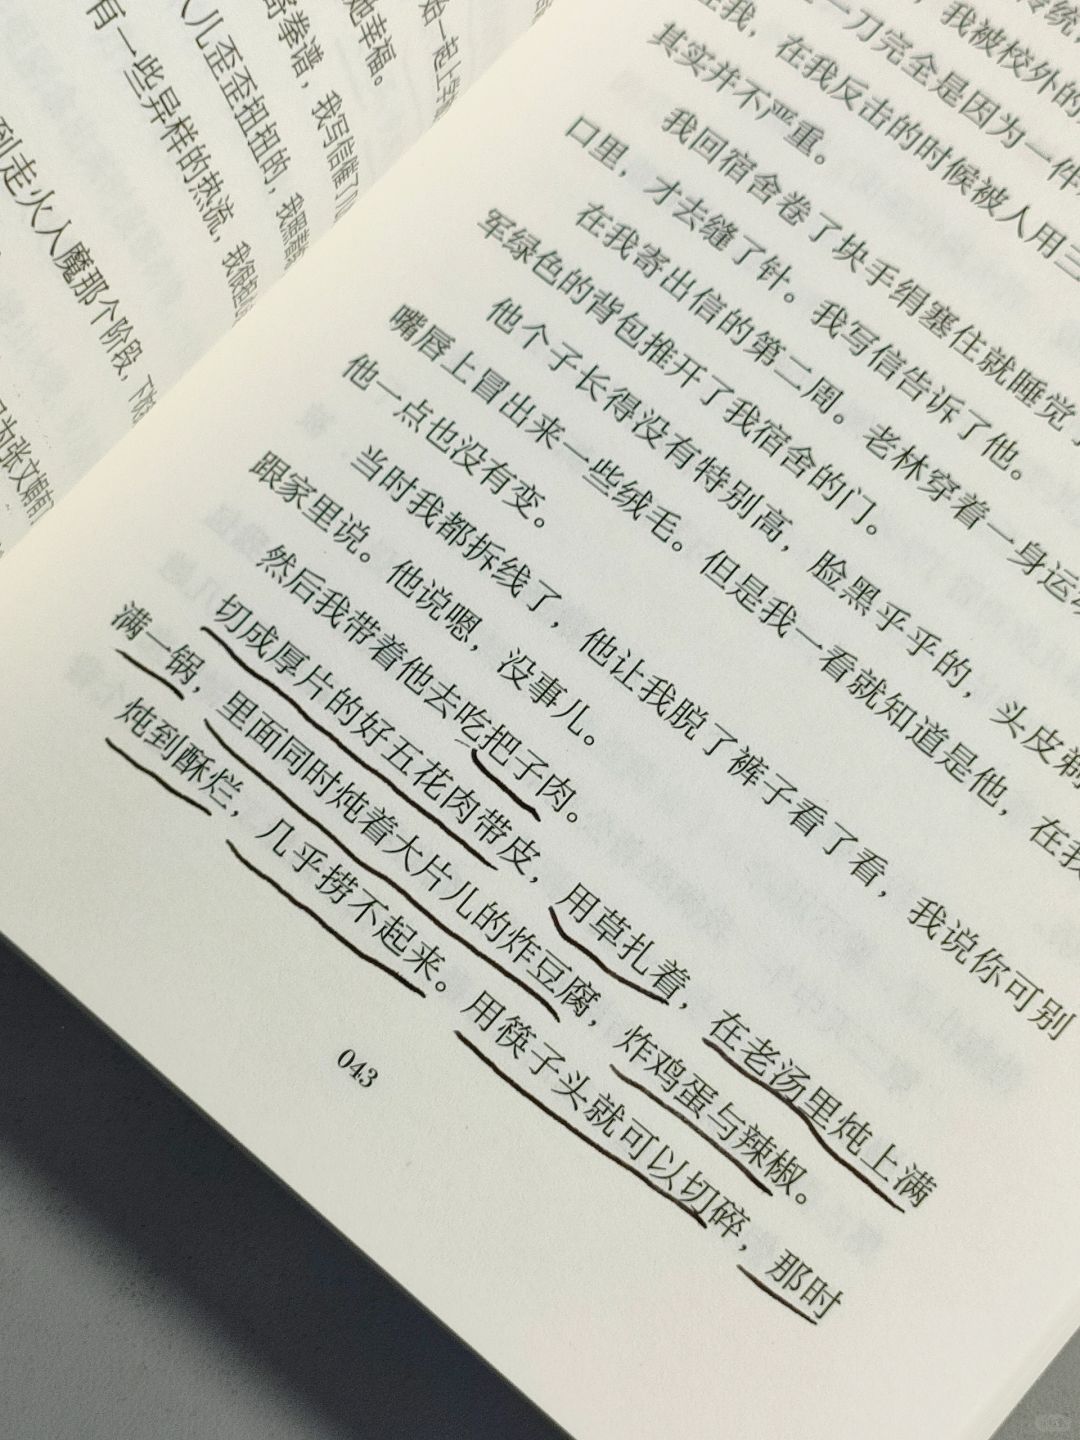 始一起上学
她幸福。
奇拳谱，我写信催了几
人儿歪歪扭扭的，我照着
有一些异样的热流，我
到走火入魔那个阶段，
为张文甫
传统，
，我被校外的
一刀完全是因为一件
在我，在我反击的时候被人用三
其实并不严重。
我回宿舍卷了块手绢塞住就睡觉
口里，才去缝了针。我写信告诉了他。
在我寄出信的第二周。老林穿着一身运动
军绿色的背包推开了我宿舍的门。
他个子长得没有特别高，脸黑乎乎的，头皮剃
嘴唇上冒出来一些绒毛。但是我一看就知道是他，在我
他一点也没有变。
当时我都拆线了，他让我脱了裤子看了看，我说你可别
跟家里说。他说嗯，没事儿。
然后我带着他去吃把子肉。
切成厚片的好五花肉带皮，用草扎着，在老汤里炖上满
满一锅，里面同时炖着大片儿的炸豆腐，炸鸡蛋与辣椒。
炖到酥烂，几乎捞不起来。用筷子头就可以切碎，那时
043